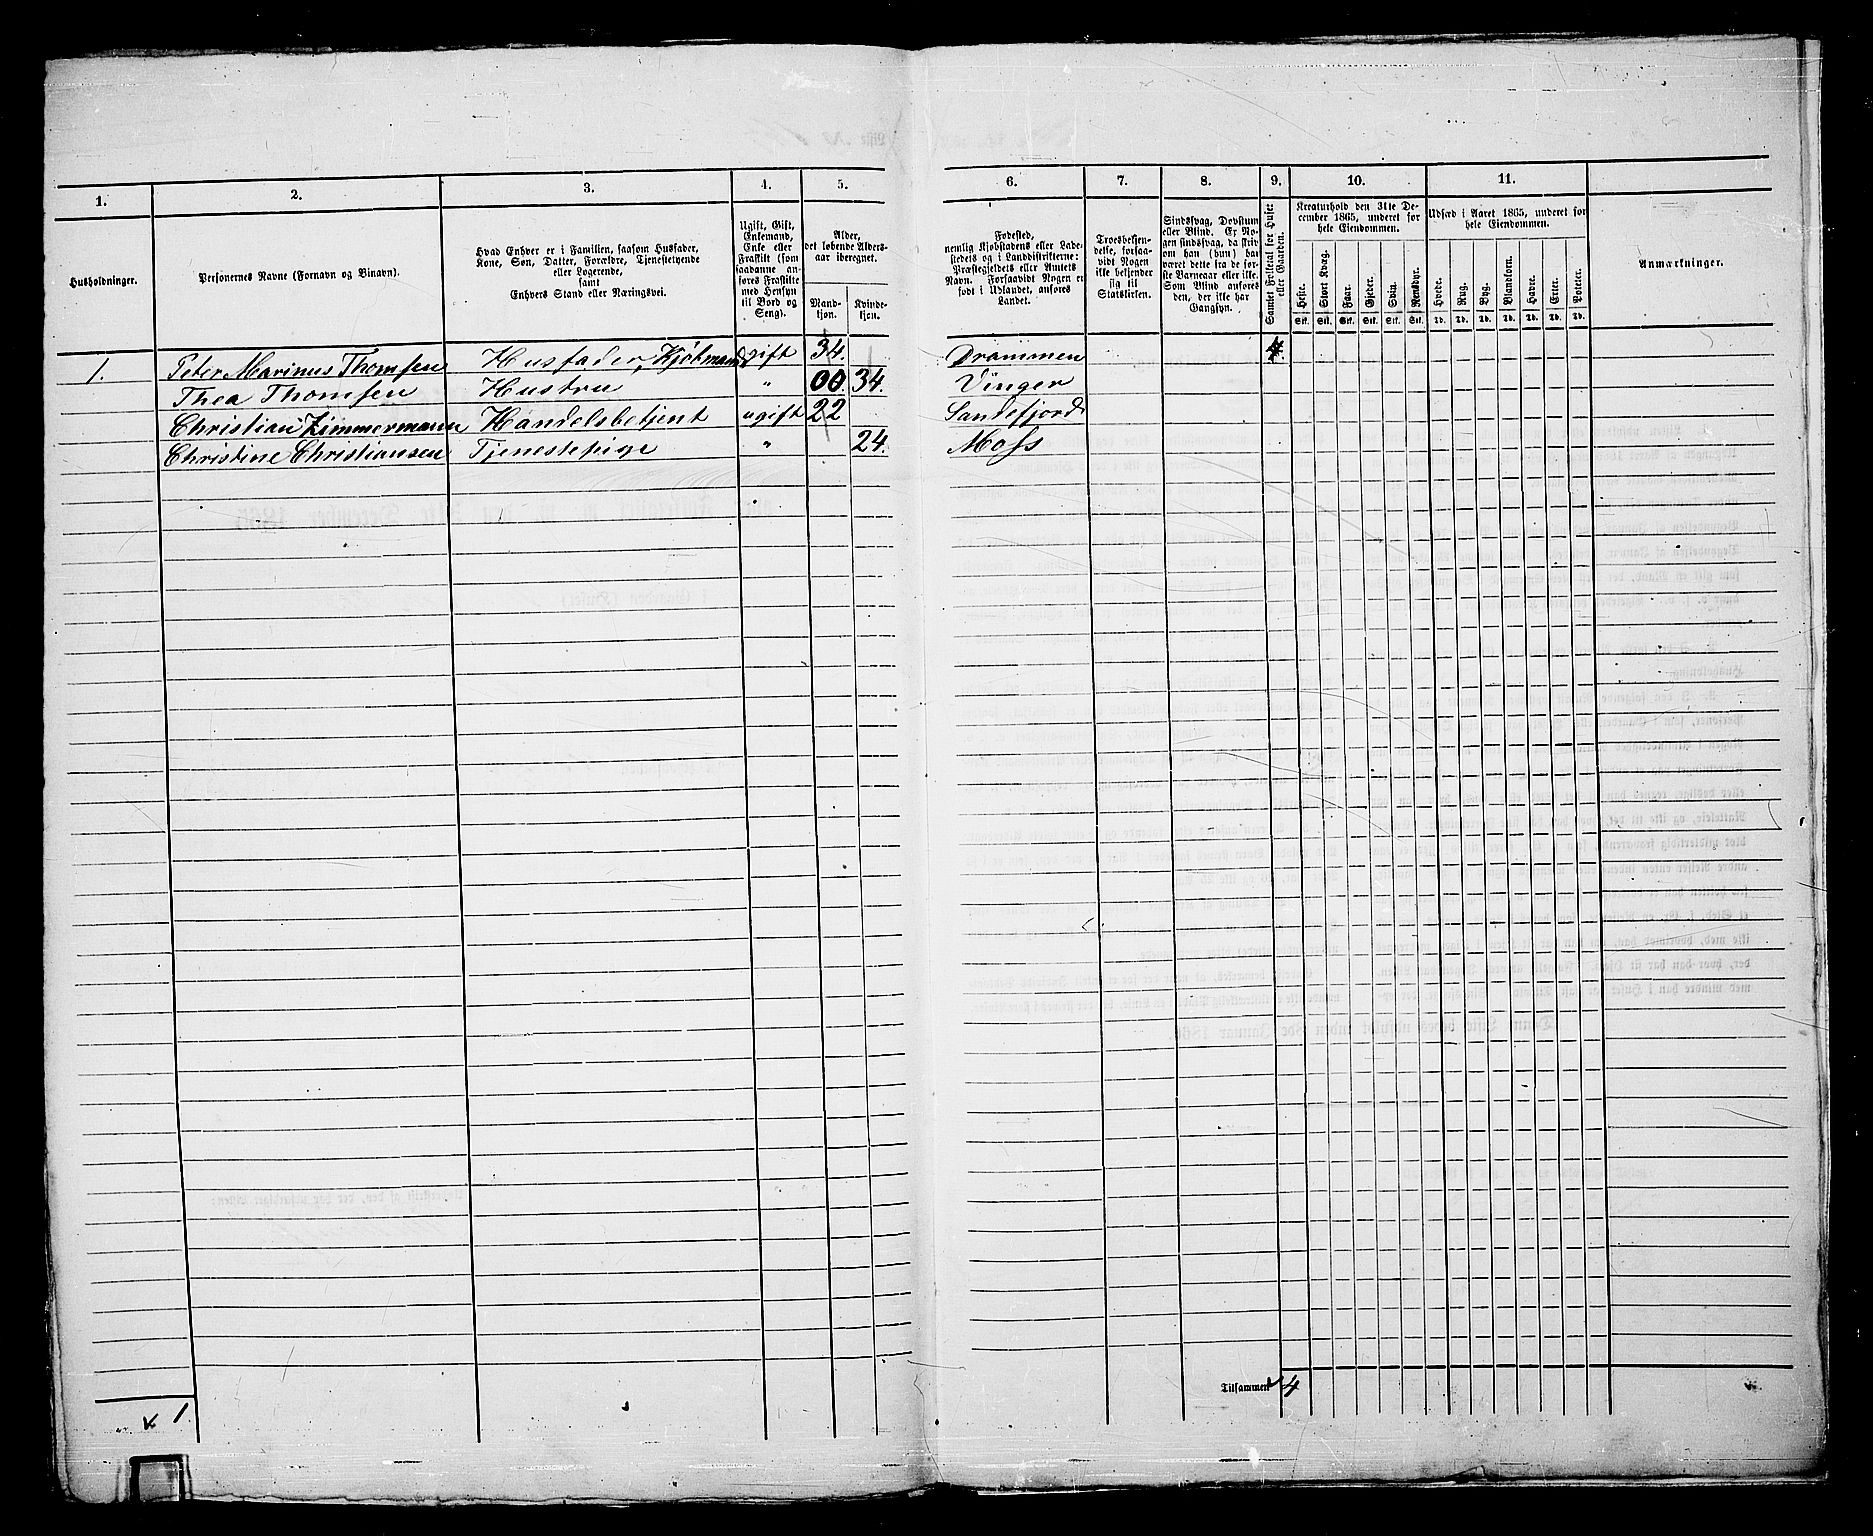 1. 2. 3. 4. 5. 6. 7. 8. 9. 10. 11.
Husholdninger.
Personernes Navne (Fornavn og Binavn).
Hvad Enhver er i Familien, saasom Husfader,
Kone, Søn, Datter, Forældre, Tjenestetyende
eller Logerende,
samt
Enhvers Stand eller Næringsvei.
Ugift, Gift,
Enkemand,
Enke eller
Fraskilt (som
saadanne an-
føres Fraskilte
med Hensyn
til Bord og
Seng).
Alder,
det løbende Alders-
aar iberegnet.
Mand-
kjøn.
Kvinde-
kjøn.
Fødested,
nemlig Kjøbstadens eller Lade-
stedets og i Landdistrikterne:
Præstegjeldets eller Amtets
Navn. Forsaavidt Nogen er
født i Udlandet, anføres
Landet.
Troesbekjen-
delse, forsaa-
vidt Nogen
ikke bekjender
sig til
Statskirken.
Sindssvag, Døvstum
eller Blind. Er No-
gen sindssvag, da skriv
om han (hun) har
været dette fra de før-
ste Barneaar eller ikke.
Som Blind anføres
den, der ikke har
Gangsyn.
Samlet Folketal for Huset
eller Gaarden.
Kreaturhold den 31te De-
cember 1865, underet for
hele Eiendommen.
Heste. Stort Kvæg. Faar. Gjeder. Svin. Rensdyr.
Stk. Stk. Stk. Stk. Stk. Stk.
Udsæd i Aaret 1865, underet for
hele Eiendommen.
Hvede. Rug. Byg. Blandkorn. Havre. Erter. Poteter.
Td. Td. Td. Td. Td. Td. Td.
Anmærkninger.
1. Peter Marinus Thomsen Husfader, Kjøbmand gift 34. Drammen 4.
Thea Thomsen Hustru " 00. 34. Vinger
Christian Zimmermann Handelsbetjent ugift 22 Sandefjord
Christine Christiansen Tjenestepige " 24. Moss
Tilsammen 4
1.